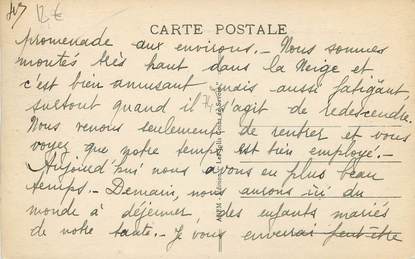 12 €
CARTE POSTALE
promenade aux environs. _ Nous sommes
montés très haut dans la Neige et
c'est bien amusant mais aussi fatigant,
surtout quand il s'agit de redescendre.
Nous venons seulement de rentrer et vous
voyez que notre temps est bien employé. _
Aujourd'hui nous avons eu plus beau
temps. _ Demain, nous aurons ici du
monde à déjeuner, des enfants mariés
de votre tante. _ Je vous enverrai peut-être